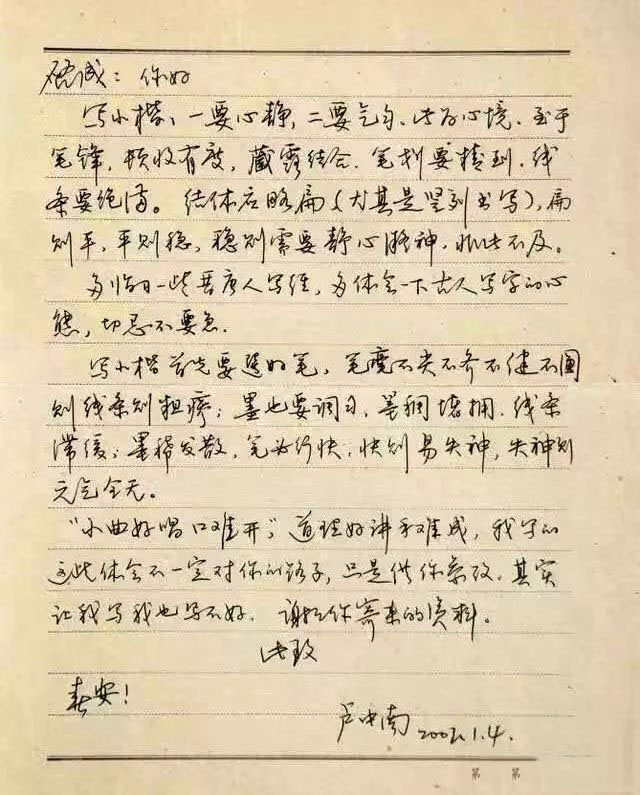 啟成：你好
写小楷，一要心静，二要气匀，此为心境。至于
笔锋，顿收有度，藏露结合。笔划要精到，线
条要饱满。结体应略扁（尤其是竖列书写），扁
则平，平则稳，稳则需要静心凝神，非此不及。
多临习一些晋唐人写经，多体会一下古人写字的心
态，切忌不要急。
写小楷首先要选好笔，笔度不尖不齐不健不圆
则线条则粗疏；墨也要调习，墨稠堵拥，线条
滞缓；墨稀发散，笔必行快，快则易失神，失神则
元气全无。
“小曲好唱口难开”，道理好讲手难成，我写的
这些体会不一定对你的路子，只是供你参考。其实
让我写我也写不好。谢谢你寄来的资料。
此致
春安！
卢中南 2002.1.4.
第 第